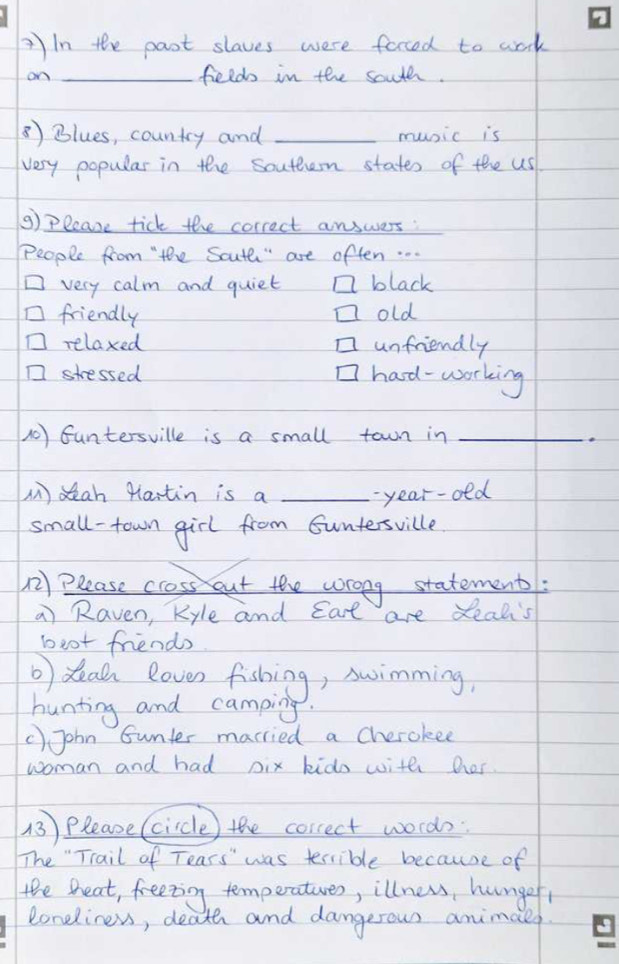 7) In the past slaves were forced to work
on __________ fields in the south.
8) Blues, country and ________ music is
very popular in the Southern states of the US.
9) Please tick the correct answers:
People from "the South" are often ...
☐ very calm and quiet ☐ black
☐ friendly ☐ old
☐ relaxed ☐ unfriendly
☐ stressed ☐ hard-working
10) Guntersville is a small town in __________.
11) Leah Martin is a _______-year-old
small-town girl from Guntersville.
12) Please cross out the wrong statements:
a) Raven, Kyle and Earl are Leah's
best friends.
b) Leah loves fishing, swimming,
hunting and camping.
c) John Gunter married a Cherokee
woman and had six kids with her.
13) Please circle the correct words:
The "Trail of Tears" was terrible because of
the heat, freezing temperatures, illness, hunger,
loneliness, death and dangerous animals.